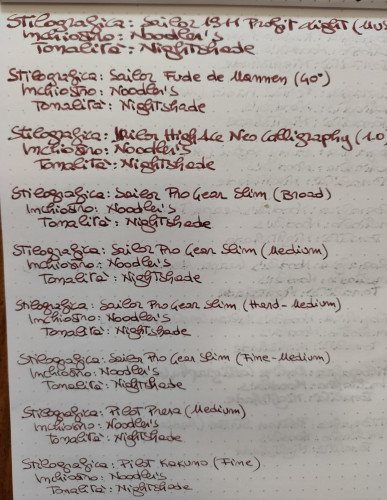 Stilografica: Sailor 1911 Profit Light (Mus
Inchiostro: Noodler's
Tonalità: Nightshade
Stilografica: Sailor Fude de Mannen (40°)
Inchiostro: Noodler's
Tonalità: Nightshade
Stilografica: Sailor High Ace Neo Calligraphy (1.0
Inchiostro: Noodler's
Tonalità: Nightshade
Stilografica: Sailor Pro Gear Slim (Broad)
Inchiostro: Noodler's
Tonalità: Nightshade
Stilografica: Sailor Pro Gear Slim (Medium)
Inchiostro: Noodler's
Tonalità: Nightshade
Stilografica: Sailor Pro Gear Slim (Hard-Medium)
Inchiostro: Noodler's
Tonalità: Nightshade
Stilografica: Sailor Pro Gear Slim (Fine-Medium)
Inchiostro: Noodler's
Tonalità: Nightshade
Stilografica: Pilot Prera (Medium)
Inchiostro: Noodler's
Tonalità: Nightshade
Stilografica: Pilot Kakuno (Fine)
Inchiostro: Noodler's
Tonalità: Nightshade